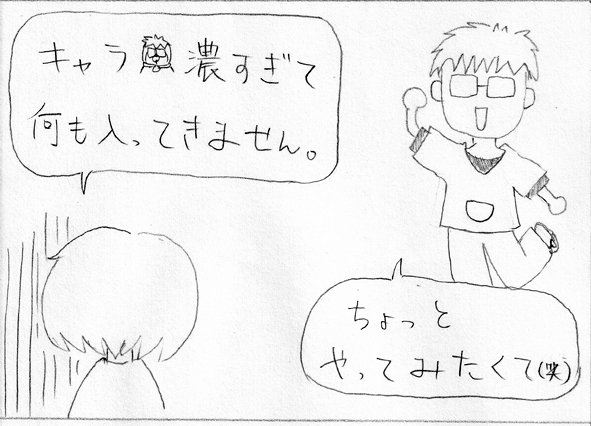 キャラ濃すぎて
何も入ってきません。
ちょっと
やってみたくて(笑)